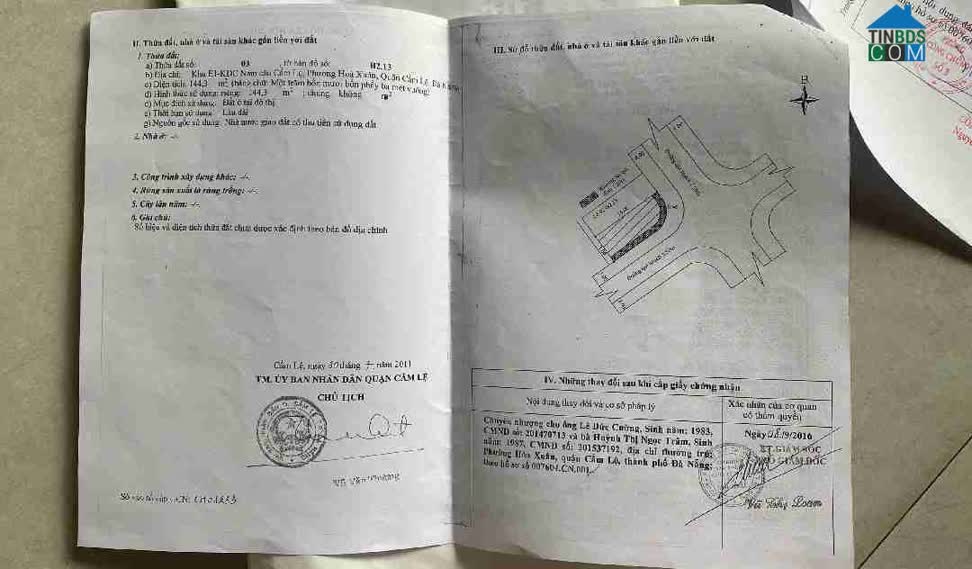 II. Thửa đất, nhà ở và tài sản khác gắn liền với đất
1. Thửa đất:
a) Thửa đất số: 03 , tờ bản đồ số: B2.13
b) Địa chỉ: Khu E1-KDC Nam cầu Cẩm Lệ, Phường Hoà Xuân, Quận Cẩm Lệ, Đà Nẵng
c) Diện tích: 144,3 m² (bằng chữ: Một trăm bốn mươi bốn phẩy ba mét vuông)
d) Hình thức sử dụng: riêng: 144,3 m² ; chung: không m²
đ) Mục đích sử dụng: Đất ở tại đô thị
e) Thời hạn sử dụng: Lâu dài
g) Nguồn gốc sử dụng: Nhà nước giao đất có thu tiền sử dụng đất
2. Nhà ở: -/-
3. Công trình xây dựng khác: -/-
4. Rừng sản xuất là rừng trồng: -/-
5. Cây lâu năm: -/-
6. Ghi chú:
Số hiệu và diện tích thửa đất chưa được xác định theo bản đồ địa chính
Cẩm Lệ, ngày tháng năm 2011
TM. ỦY BAN NHÂN DÂN QUẬN CẨM LỆ
CHỦ TỊCH
Số vào sổ cấp
III. Sơ đồ thửa đất, nhà ở và tài sản khác gắn liền với đất
B
IV. Những thay đổi sau khi cấp giấy chứng nhận
Nội dung thay đổi và cơ sở pháp lý
Xác nhận của cơ quan
có thẩm quyền
Chuyển nhượng cho ông Lê Đức Cường, Sinh năm: 1983,
CMND số: 201470713 và bà Huỳnh Thị Ngọc Trâm, Sinh
năm: 1987, CMND số: 201537192, địa chỉ thường trú:
Phường Hòa Xuân, quận Cẩm Lệ, thành phố Đà Nẵng;
theo hồ sơ số 007604.CN.001
Ngày /9/2016
KT.GIÁM ĐỐC
PHÓ GIÁM ĐỐC
Võ Thị Loan
TINBDS
COM